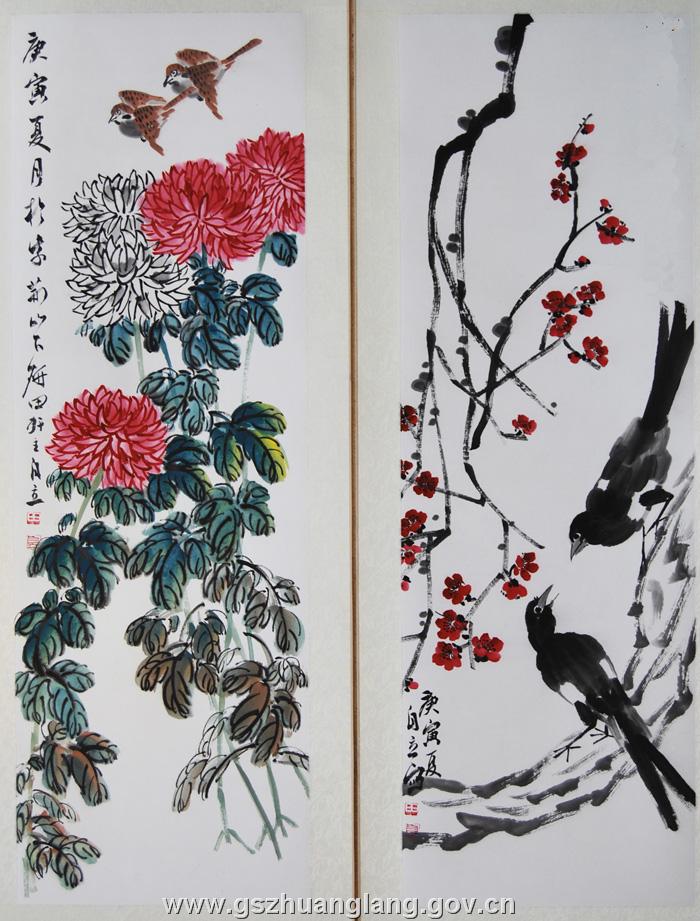 庚寅夏月於紫荆山下砚田轩主自立
庚寅夏
自立写
www.gszhuanglang.gov.cn